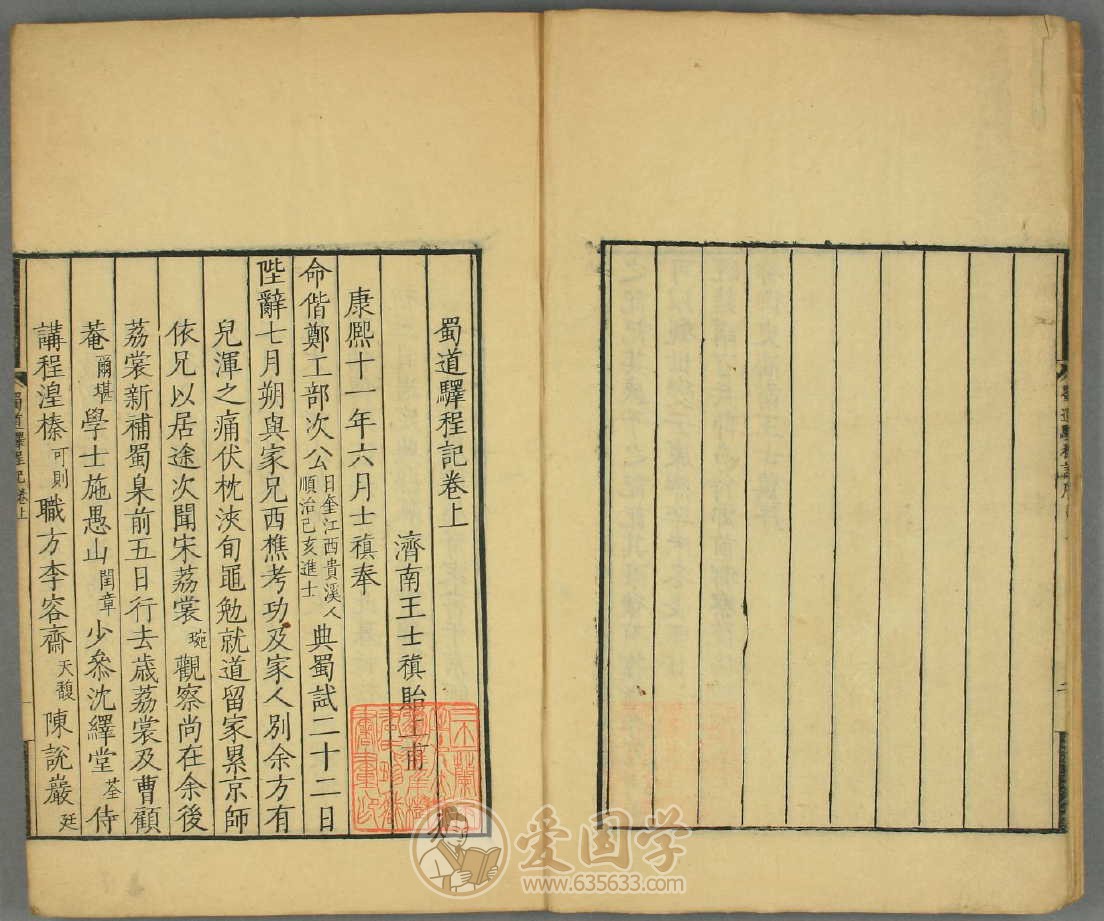 蜀道驛程記卷上
濟南王士稹貽上甫
康熙十一年六月士稹奉
命偕鄭工部次公日奎江西貴溪人順治己亥進士典蜀試二十二日
陛辭七月朔與家兄西樵考功及家人別余方有
兒渾之痛伏枕浹旬黽勉就道留家累京師
依兄以居途次聞宋荔裳琬觀察尚在余後
荔裳新補蜀臬前五日行去歲荔裳及曹顧
菴爾堪學士施愚山閏章少叅沈繹堂荃侍
講程湟榛可則職方李容齋天馥陳說巖廷
蜀道驛程記卷上
爱国学
www.635633.com